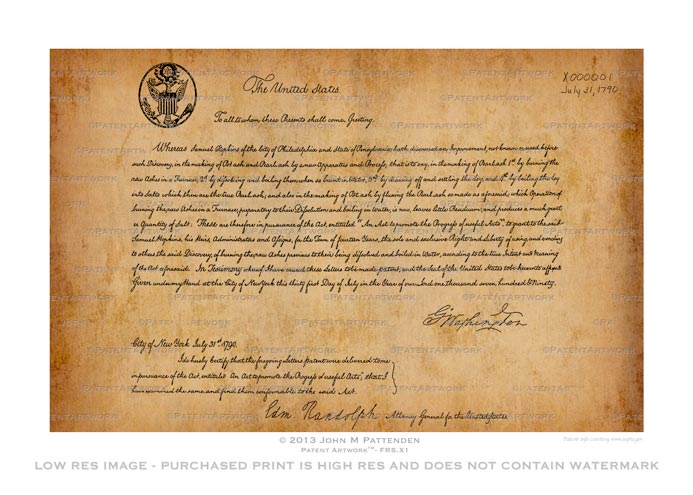 X000001
The United States.
July 31, 1790
To all to whom these Presents shall come, Greeting.
Whereas Samuel Hopkins of the City of Philadelphia and State of Pensylvania hath discovered an Improvement, not known or used before
such Discovery, in the making of Pot ash and Pearl ash by a new Apparatus and Process; that is to say, in the making of Pearl ash 1st by burning the
raw Ashes in a Furnace, 2d by dissolving and boiling them when so burnt in Water, 3rd by drawing off and settling the Ley, and 4th by boiling the Ley
into salts which then are the true Pearl ash; and also in the making of Pot ash by fluxing the Pearl ash so made as aforesaid; which Operation of
burning the raw Ashes in a Furnace, preparatory to their Dissolution and boiling in Water, is new, leaves little Residuum; and produces a much greater
Quantity of Salt: These are therefore in pursuance of the Act, entitled "An Act to promote the Progress of useful Arts", to grant to the said
Samuel Hopkins, his Heirs, Administrators and Assigns, for the Term of fourteen Years, the sole and exclusive Right and Liberty of using, and vending
to others the said Discovery, of burning the raw Ashes previous to their being dissolved and boiled in Water, according to the true Intent and Meaning
of the Act aforesaid. In Testimony whereof I have caused these Letters to be made patent, and the Seal of the United States to be hereunto affixed
Given under my Hand at the City of New York this thirty first Day of July in the Year of our Lord one thousand seven hundred & Ninety.
G. Washington
City of New York July 31st 1790.
I do hereby Certify that the foregoing Letters patent were delivered to me
in pursuance of the Act, entitled "An Act to promote the Progress of useful Arts"; that I
have examined the same, and find them conformable to the said Act.
Edm. Randolph Attorney General for the United States
Patent info courtesy www.uspto.gov
© 2013 John M Pattenden
Patent Artwork™ - FRS.X1
LOW RES IMAGE - PURCHASED PRINT IS HIGH RES AND DOES NOT CONTAIN WATERMARK
©PatentArtwork